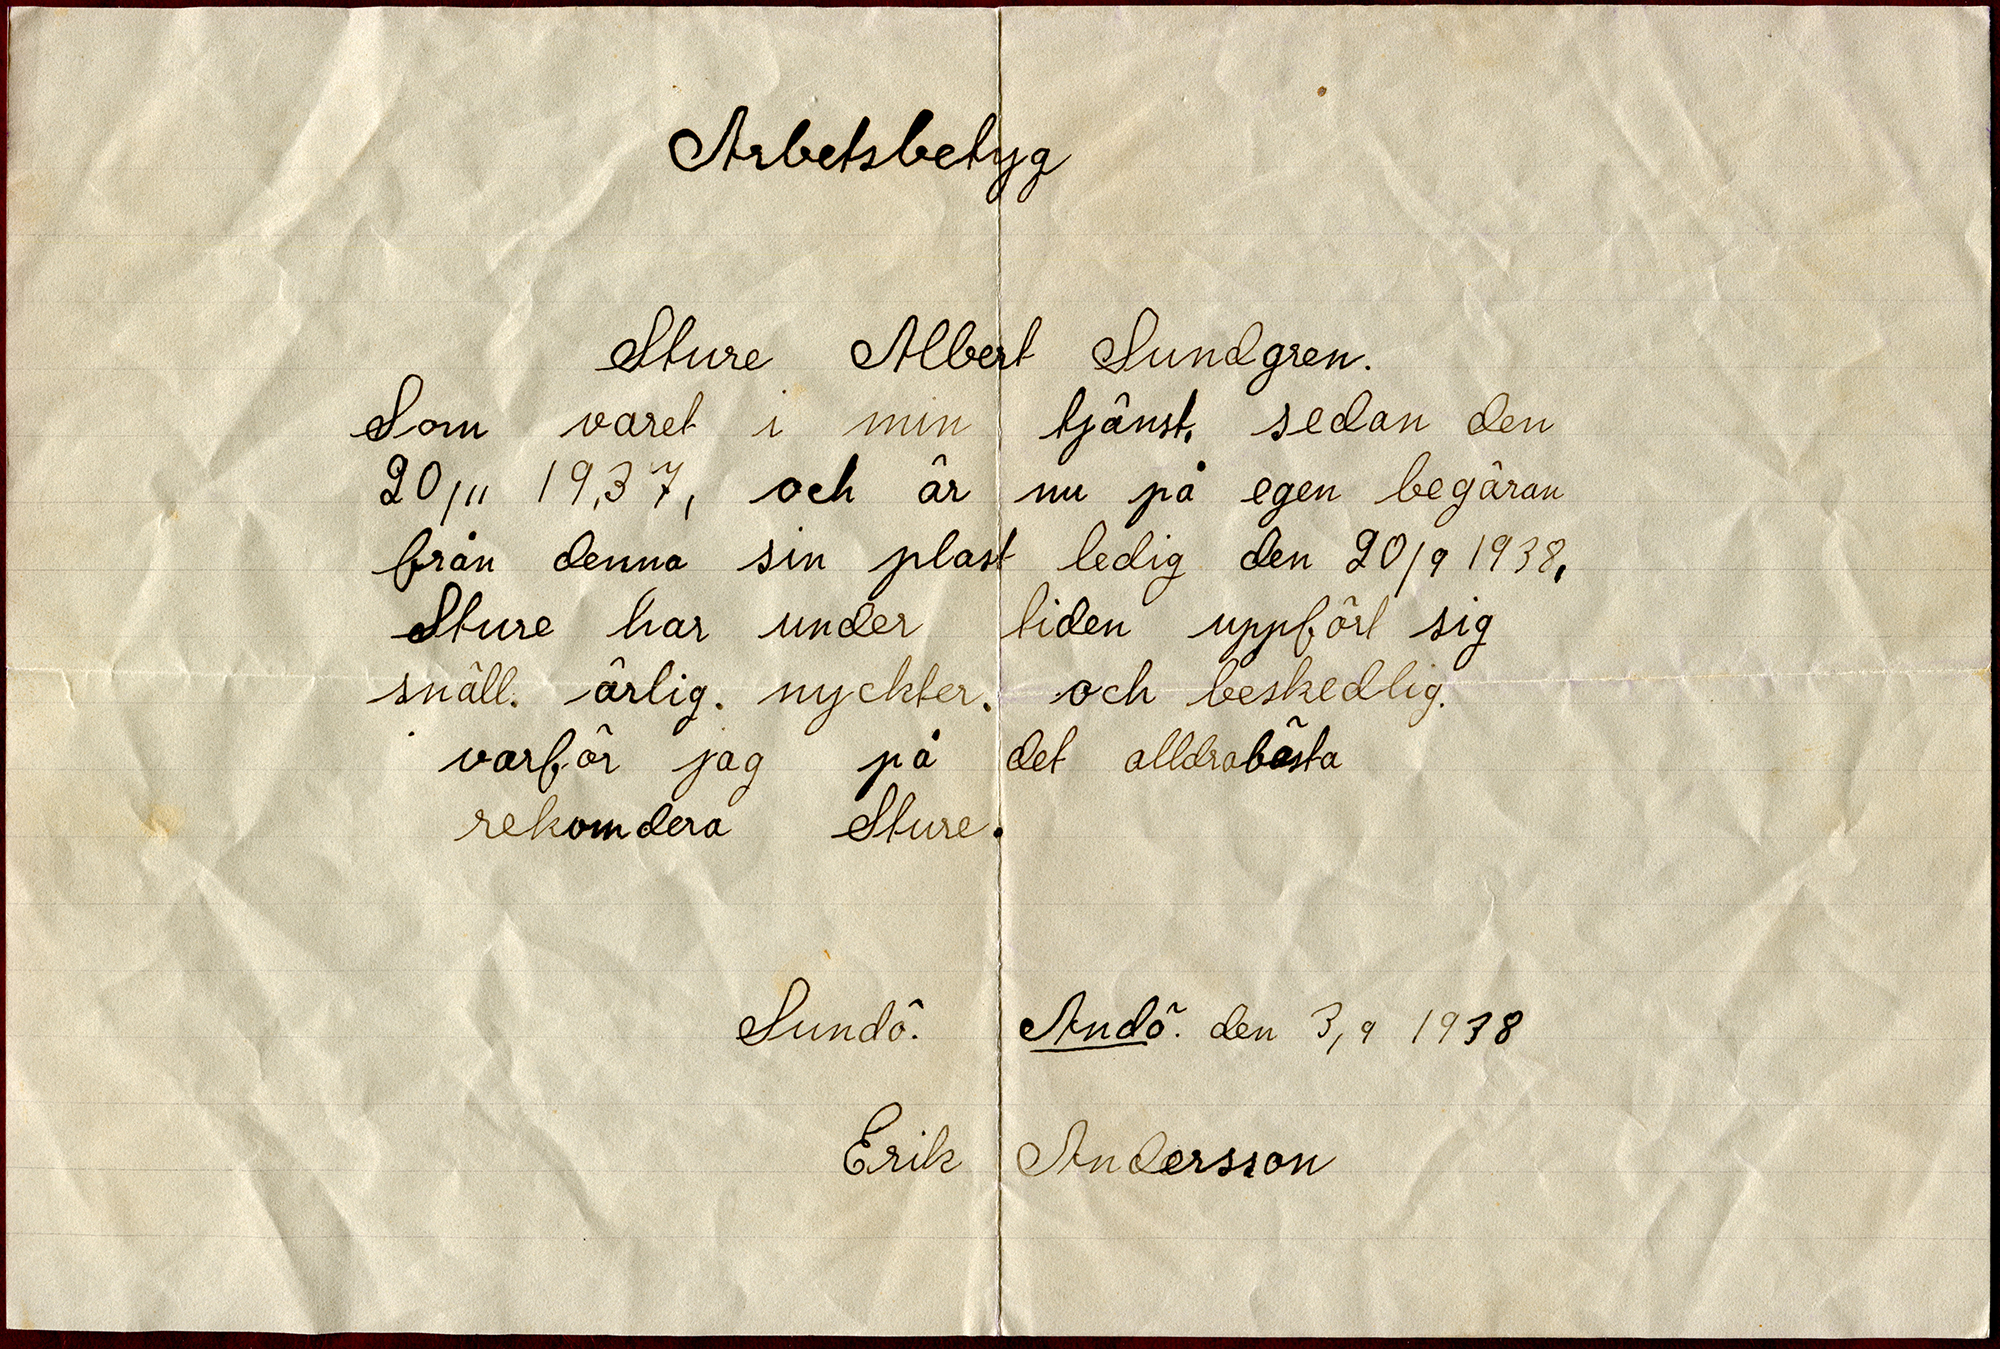 Arbetsbetyg
Sture Albert Sundgren.
Som varet i min tjänst, sedan den
20/11 19,37, och är nu på egen begäran
från denna sin plast ledig den 20/9 1938,
Sture har under tiden uppfört sig
snäll. ärlig. nyckter. och beskedlig.
varför jag på det alldrabästa
rekomdera Sture.
Sundö. Andö. den 3,9 1938
Erik Andersson